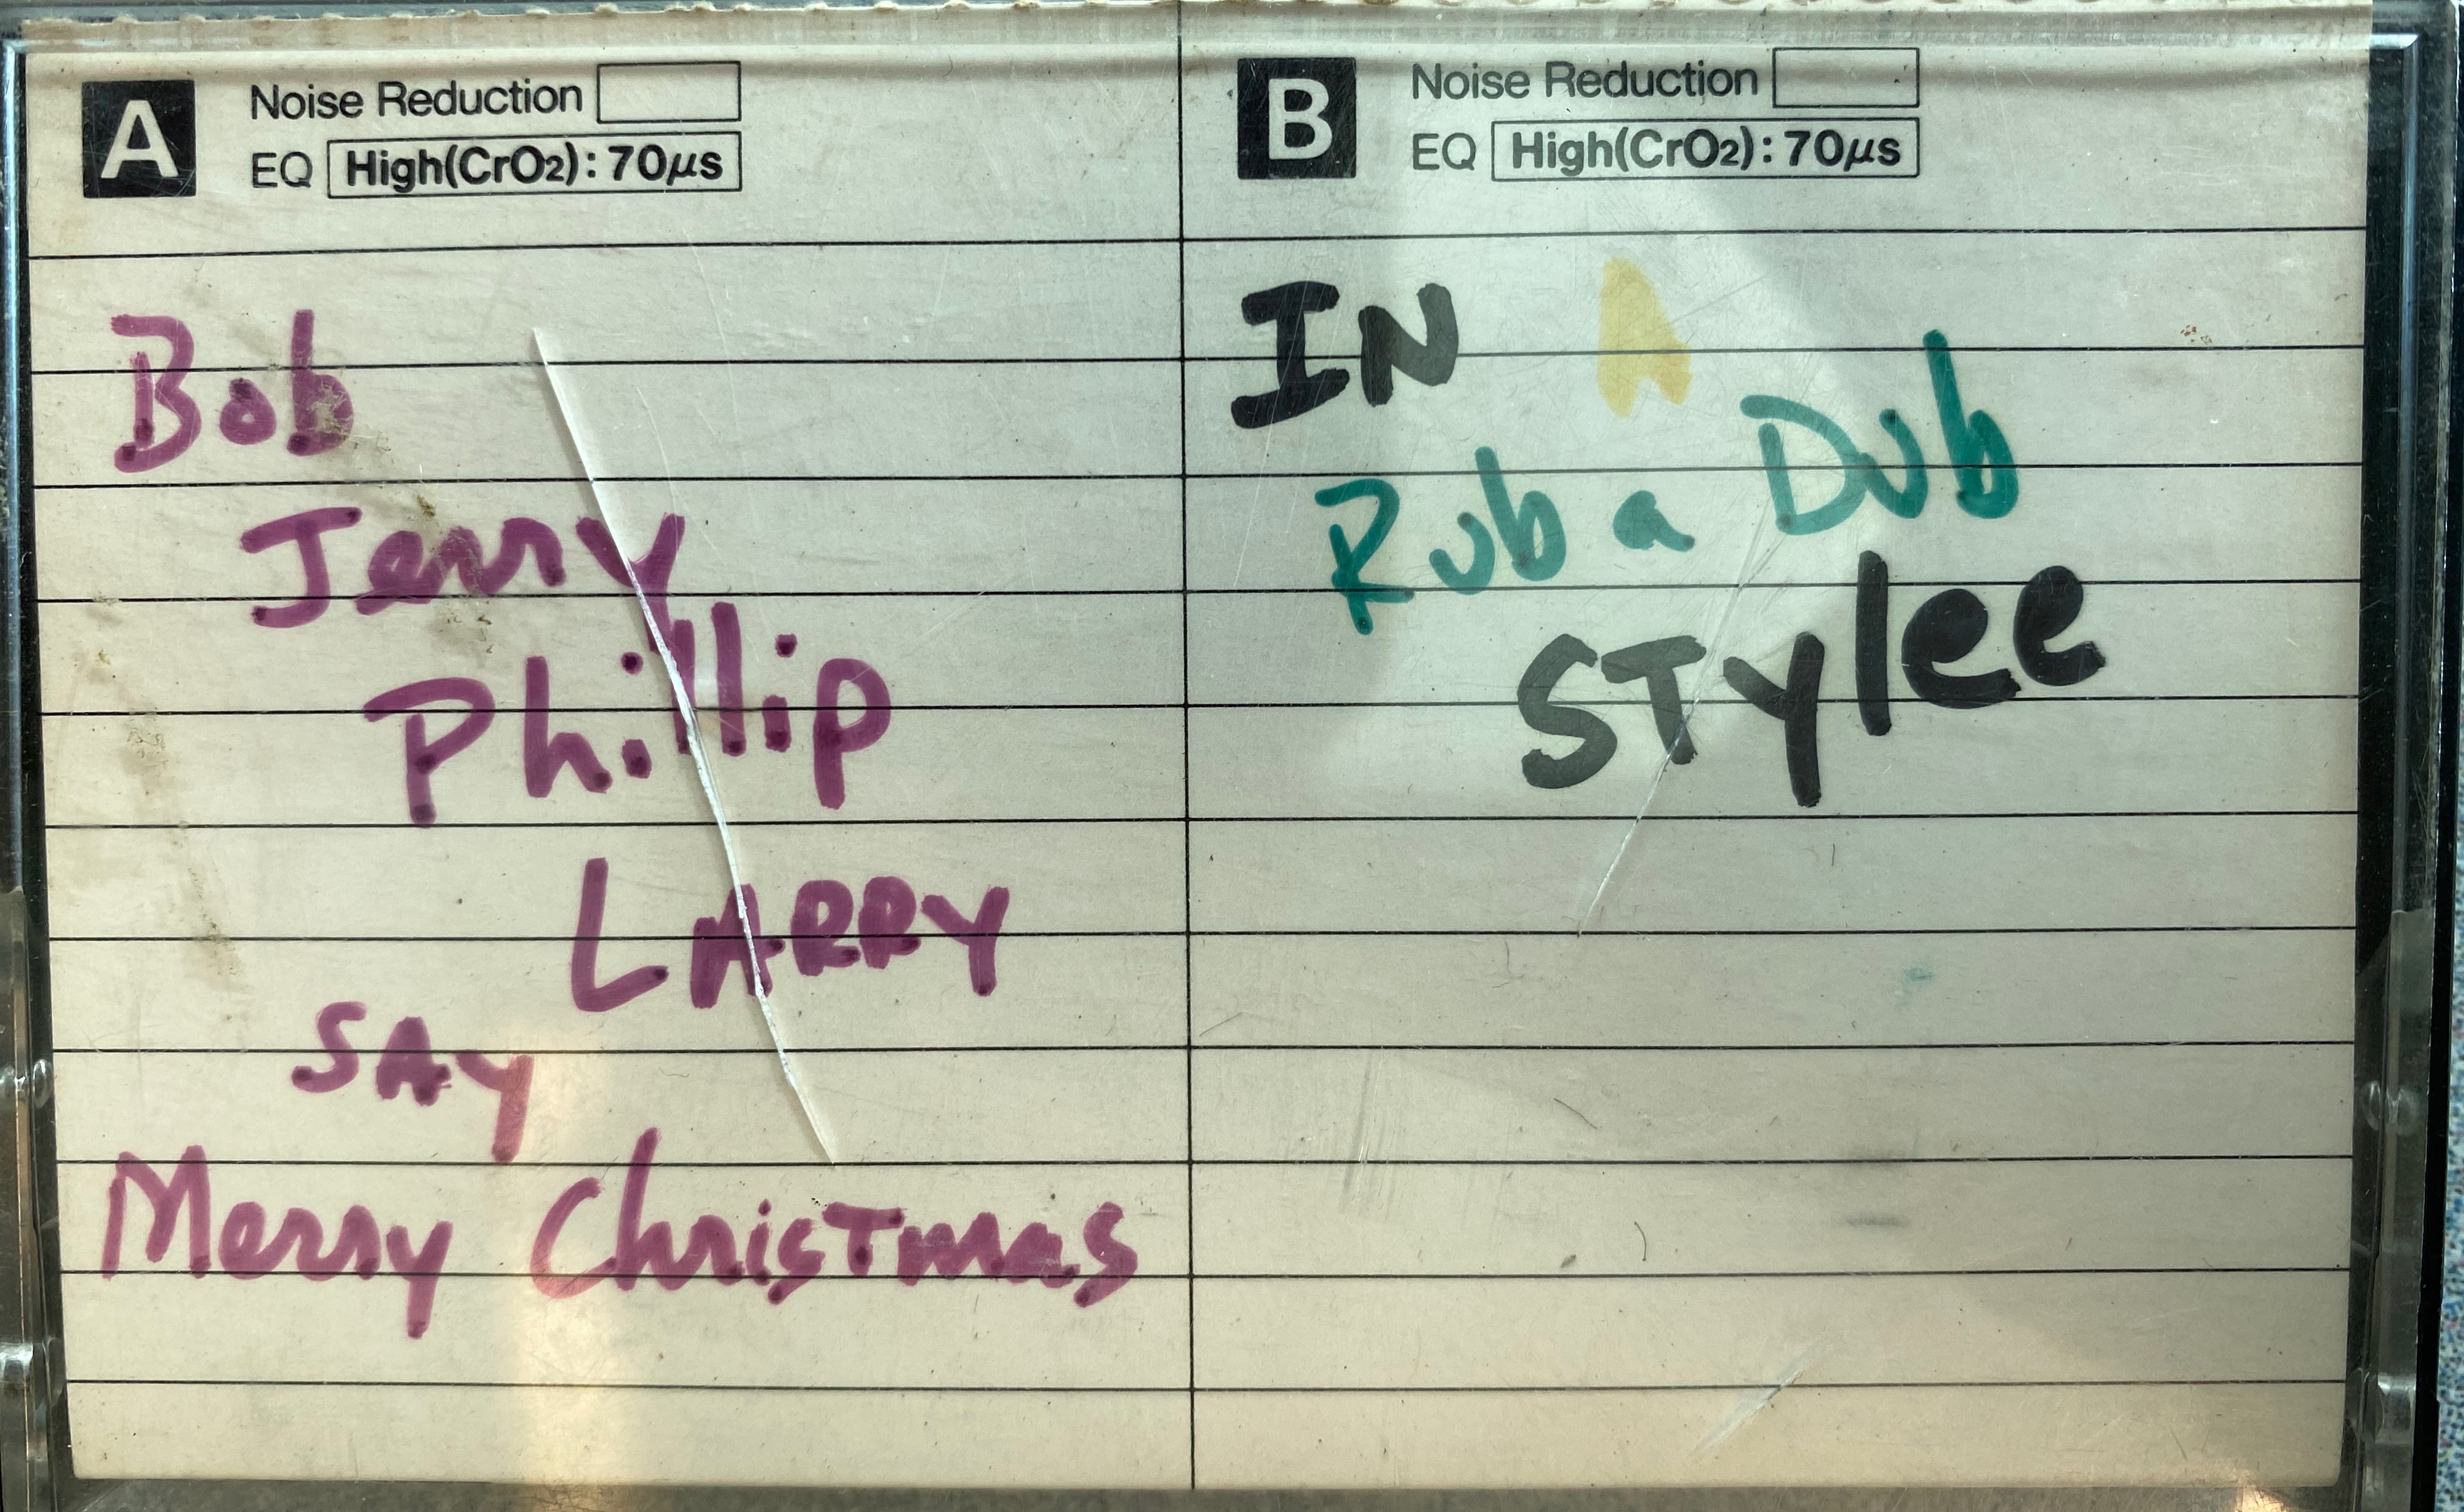 A
Noise Reduction
EQ High(CrO2): 70μs
Bob
Jerry
Phillip
LARRY
SAY
Merry Christmas
B
Noise Reduction
EQ High(CrO2): 70μs
IN A
Rub a Dub
STylee